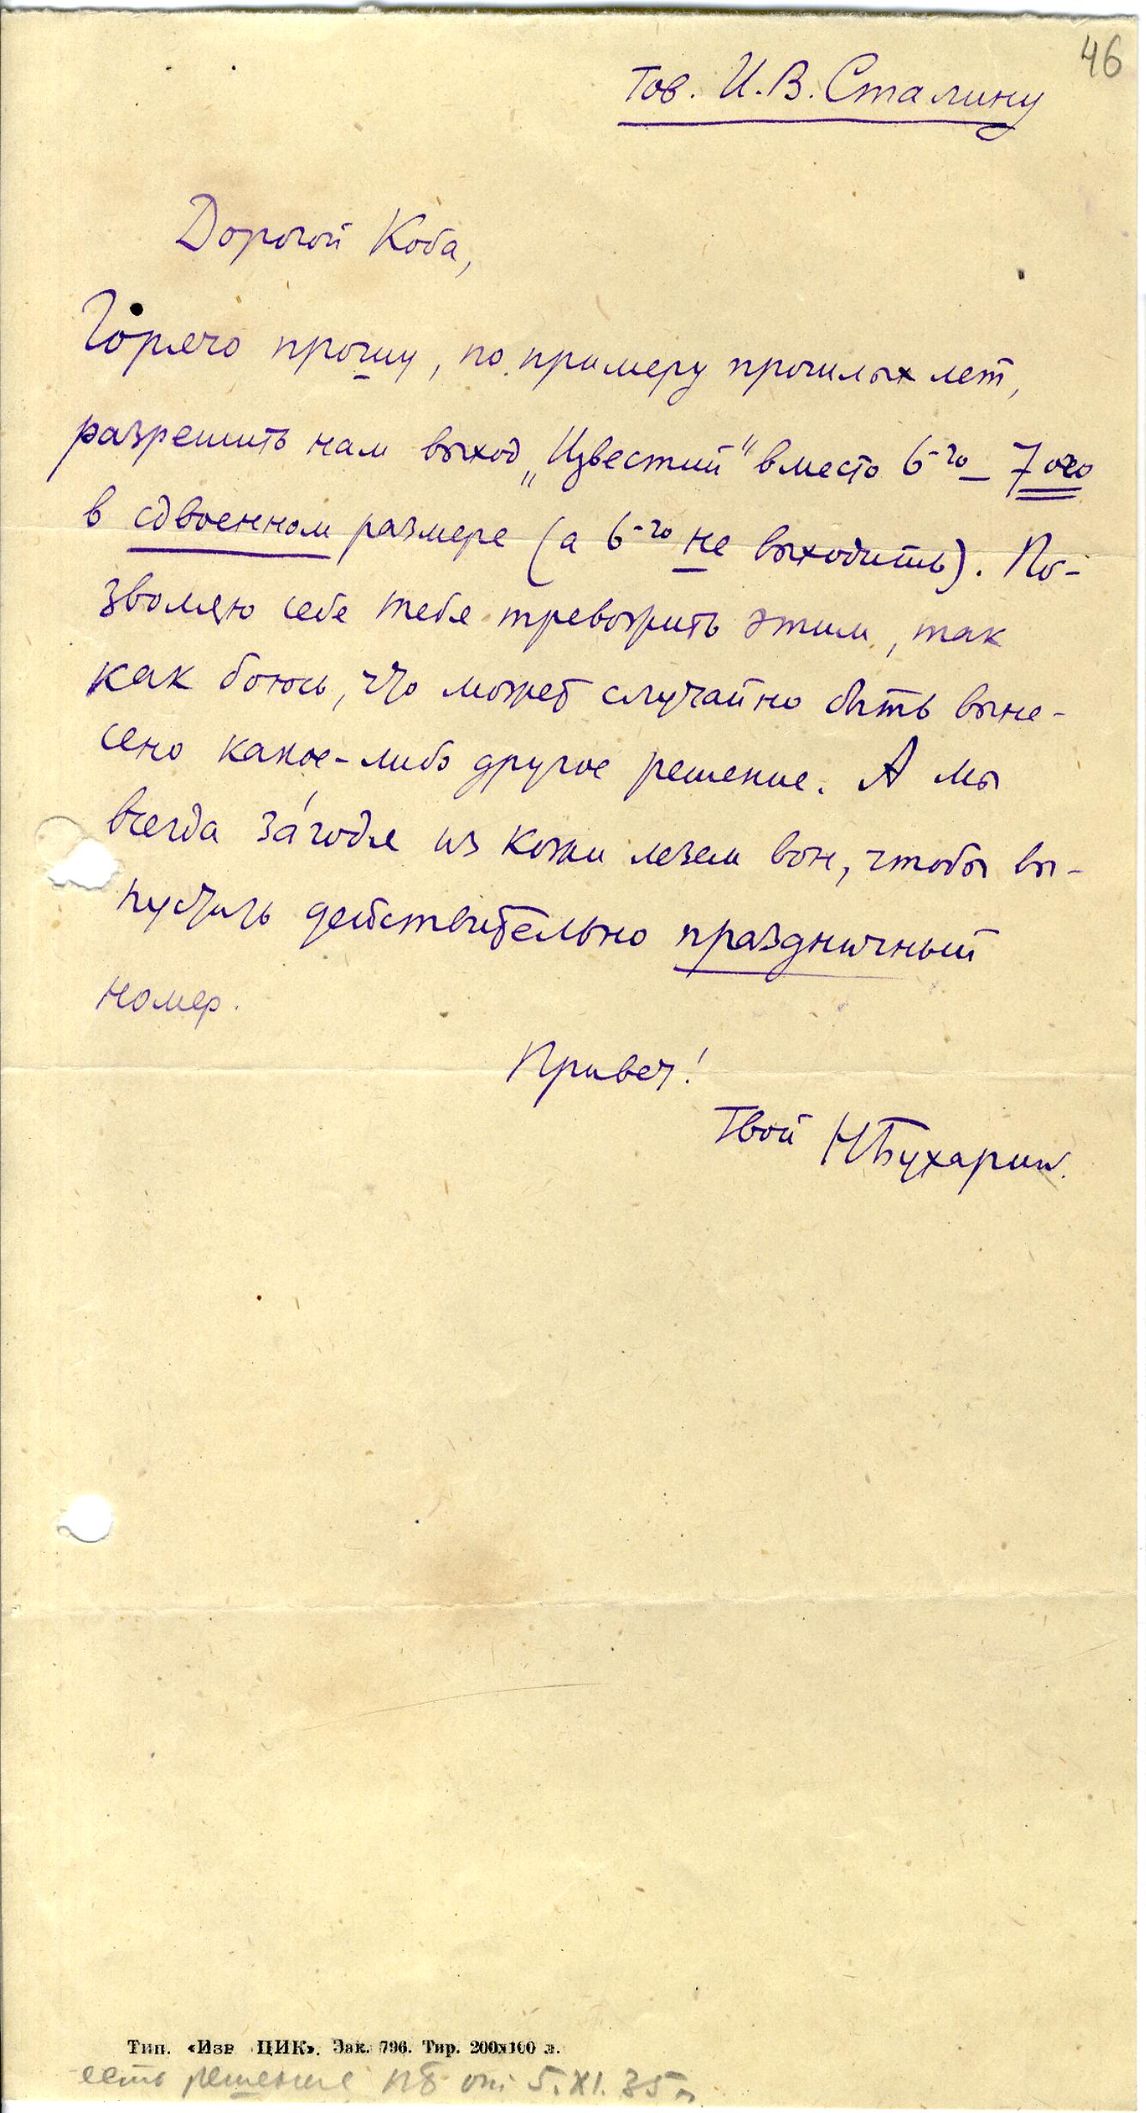 46
Тов. И. В. Сталину
Дорогой Коба,
Горячо прошу, по примеру прошлых лет,
разрешить нам выход „Известий" вместо 6-го – 7ого
в сдвоенном размере (а 6-го не выходить). По-
зволяю себе тебя тревожить этим, так
как боюсь, что может случайно быть выне-
сено какое-либо другое решение. А мы
всегда за́годя из кожи лезем вон, чтобы вы-
пустить действительно праздничный
номер.
Привет!
Твой НБухарин.
Тип. «Изв ЦИК». Зак. 796. Тир. 200х100 л.
есть решение ПБ от 5.XI.35 г.